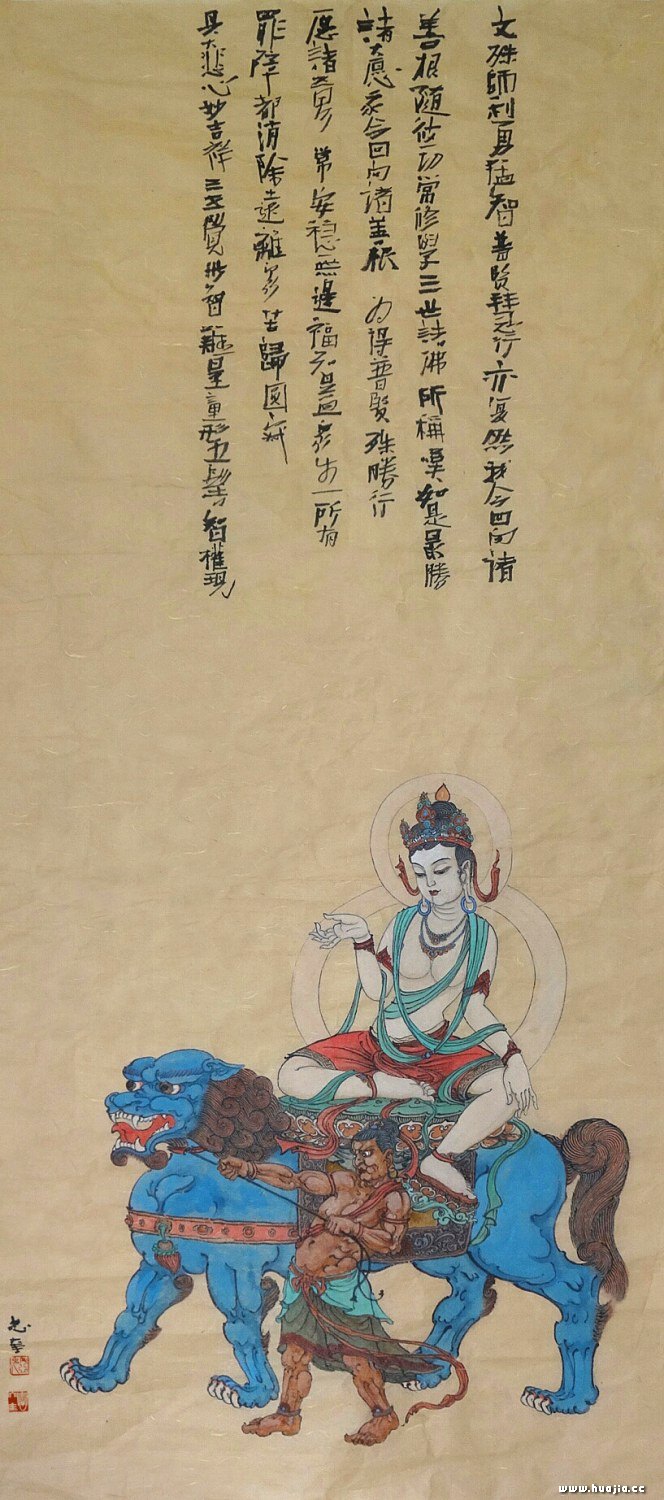 文殊師利勇猛智普賢慧行亦复然我今回向諸
善根隨彼一切常修學三世諸佛所稱嘆如是最勝
諸大愿我今回向諸善根 為得普賢殊勝行
愿諸 常安穩無邊福智益眾生一所有
罪障都消除遠離眾苦歸圓寂
具大悲心妙吉祥三 覺妙智難量童形五髻智權現
www.huajia.cc